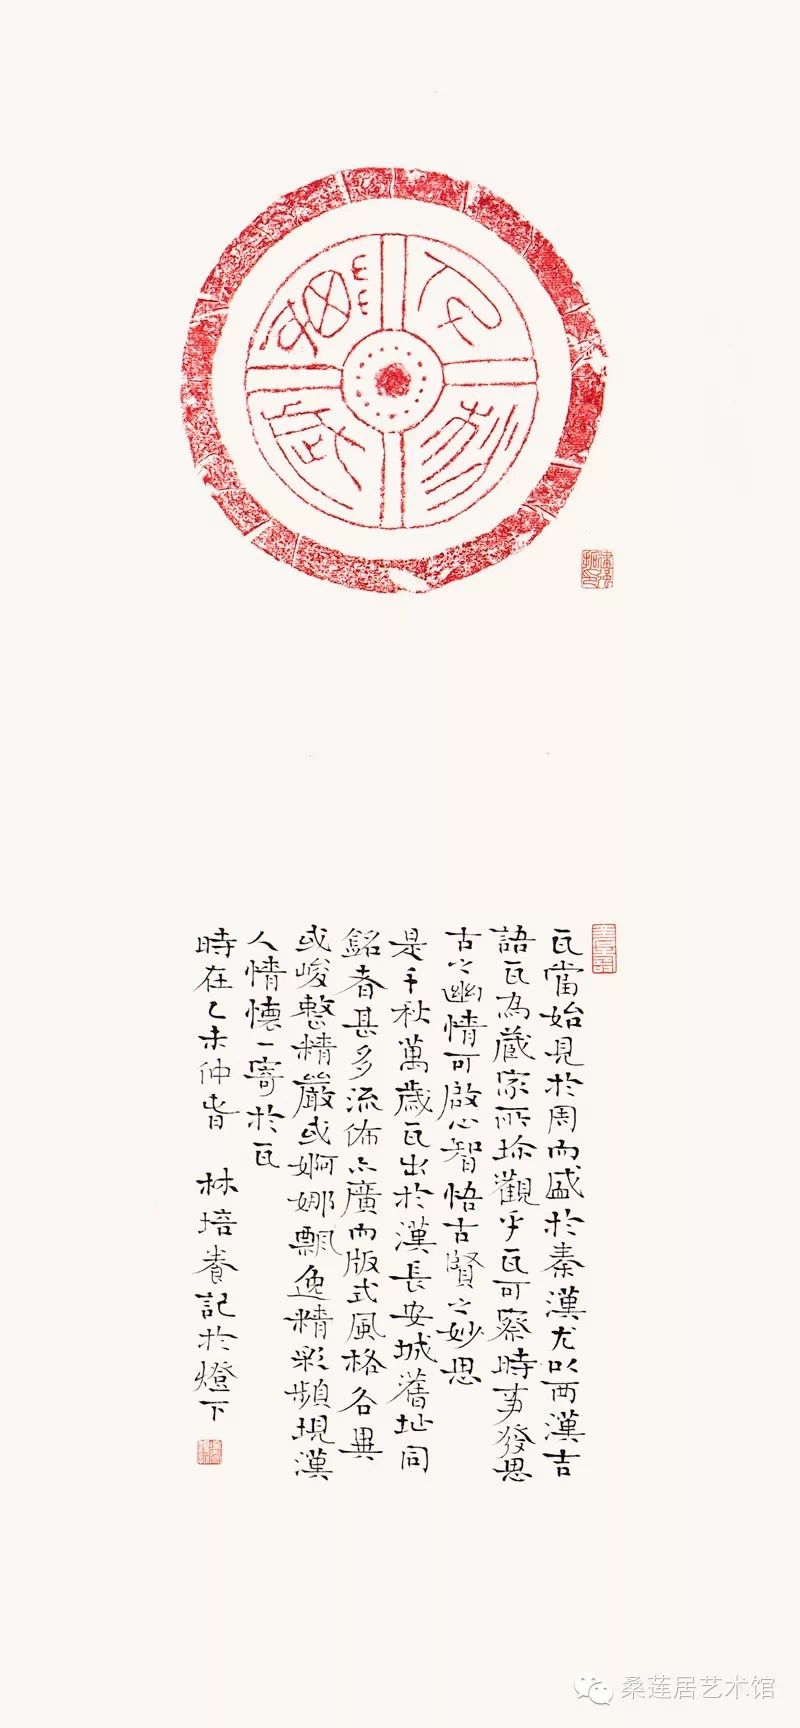 千秋萬歲
瓦當始見於周而盛於秦漢尤以西漢吉
語瓦為藏家所珍觀乎瓦可察時事發思
古之幽情可啟心智悟古賢之妙思
是千秋萬歲瓦出於漢長安城舊址同
銘者甚多流佈亦廣而版式風格各異
或峻整精嚴或婀娜飄逸精彩頻現漢
人情懷一寄於瓦
時在乙未仲春 林培養記於燈下
桑莲居艺术馆